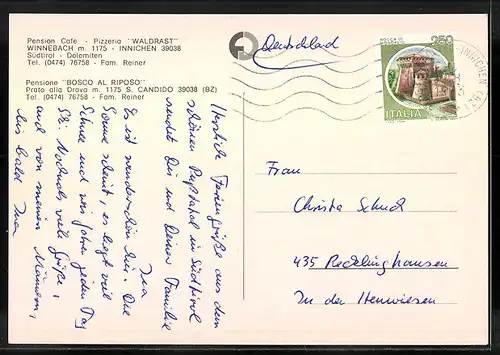 Pension Cafe - Pizzeria "WALDRAST"
WINNEBACH m. 1175 - INNICHEN 39038
Südtirol - Dolomiten
Tel. (0474) 76758 - Fam. Reiner
Pensione "BOSCO AL RIPOSO"
Prato alla Drava m. 1175 S. CANDIDO 39038 (BZ)
Tel. (0474) 76758 - Fam. Reiner
Deutschland
250
ITALIA
INNICHEN
Herzliche Feriengrüße aus dem
schönen Pustatal in Südtirol
sendet Dir und Deiner Familie
Ina
Es ist wunderschön hier. Die
Sonne scheint, es liegt viel
Schnee und wir fahren jeden Tag
Ski. Nochmals viele Grüße,
auch von meinen Männern,
bis bald Ina
Frau
Christa Schuch
435 Recklinghausen
In den Heuwiesen